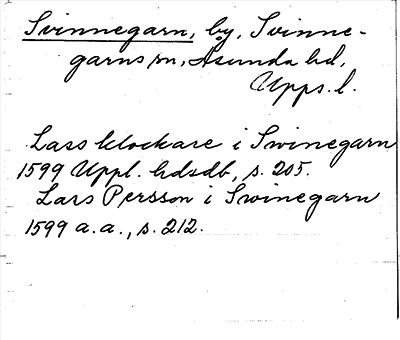 Svinnegarn, by, Svinne-
garns sn, Åsunda hd,
Upps. l.
Lass klockare i Swinegarn
1599 Uppl. hdsdb, s. 205.
Lars Persson i Swinegarn
1599 a. a., s. 212.